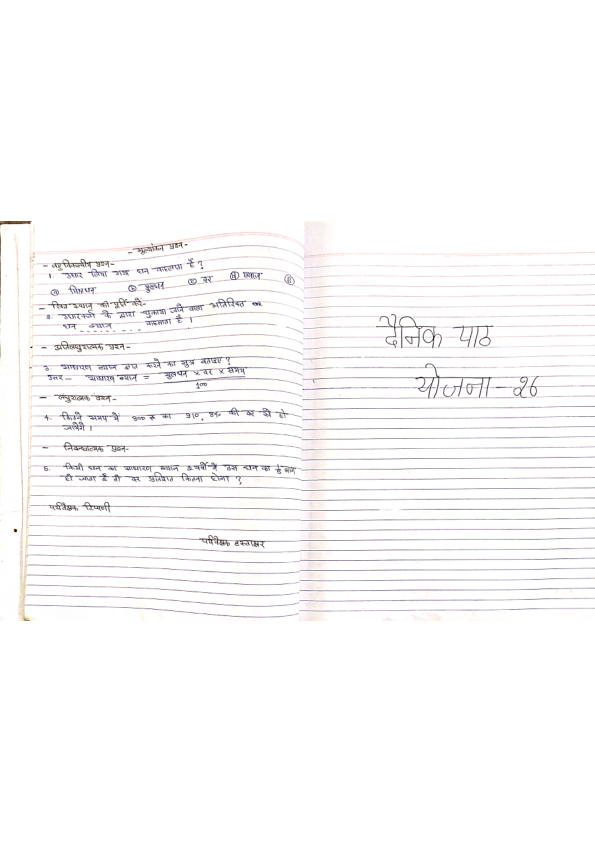 - मूल्यांकन प्रश्न-
- बहुविकल्पीय प्रश्न-
1. उधार लिया गया धन कहलाता है ?
मिश्रधन मूलधन दर ब्याज
- रिक्त स्थान की पूर्ति करे-
2. उधारकर्ता के द्वारा चुकाया जाने वाला अतिरिक्त
धन ब्याज कहलाता है ।
- अतिलघुरात्मक प्रश्न-
3. साधारण ब्याज ज्ञात करने का सूत्र बताइए ?
उत्तर- साधारण ब्याज = मूलधन × दर × समय
100
- लघुरात्मक प्रश्न-
4. कितने समय में 800 रु का 910, की दर से हो
जायेंगे ।
- निबन्धात्मक प्रश्न-
5. किसी धन का साधारण ब्याज वर्षो में उस धन का भाग
हो जाता है तो दर प्रतिशत कितना होगा ?
पर्यवेक्षक टिप्पणी
पर्यवेक्षक हस्ताक्षर
दैनिक पाठ
योजना-26